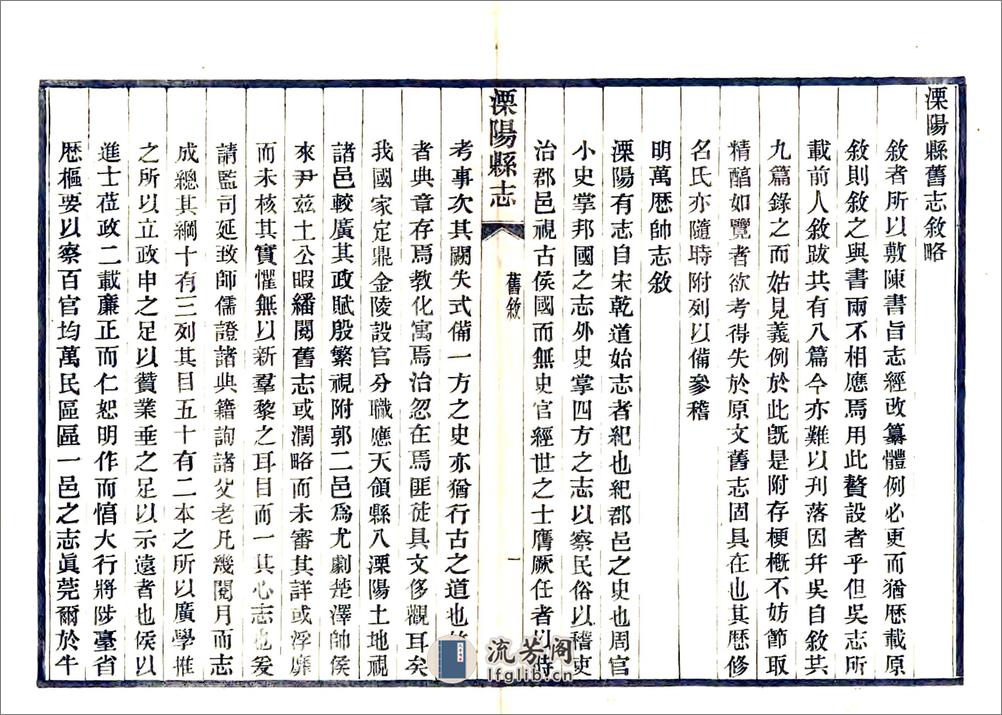 溧陽縣舊志敘略
敘者所以敷陳書旨志經改纂體例必更而猶歷載原
敘則敘之與書兩不相應焉用此贅設者乎但吳志所
載前人敘跋共有八篇今亦難以刋落因幷吳自敘共
九篇錄之而姑見義例於此旣是附存梗槪不妨節取
精醕如覽者欲考得失於原文舊志固具在也其歷修
名氏亦隨時附列以備參稽
明萬厯帥志敘
溧陽有志自宋乾道始志者紀也紀郡邑之史也周官
小史掌邦國之志外史掌四方之志以察民俗以稽吏
治郡邑視古侯國而無史官經世之士膺厥任者以時
溧陽縣志
舊敘
一
考事次其闕失式備一方之史亦猶行古之道也
者典章存焉敎化寓焉治忽在焉匪徒具文侈觀耳矣
我國家定鼎金陵設官分職應天領縣八溧陽土地視
諸邑較廣其政賦殷繁視附郭二邑爲尤劇楚澤帥侯
來尹兹土公暇繙閱舊志或濶略而未審其詳或浮靡
而未核其實懼無以新羣黎之耳目而一其心志也爰
請監司延致師儒證諸典籍詢諸父老凡幾閱月而志
成總其綱十有三列其目五十有二本之所以廣學推
之所以立政申之足以贊業垂之足以示遠者也侯以
進士蒞政二載廉正而仁恕明作而惇大行將陟臺省
厯樞要以察百官均萬民區區一邑之志眞莞爾於牛
流芳阁
lfglib.cn